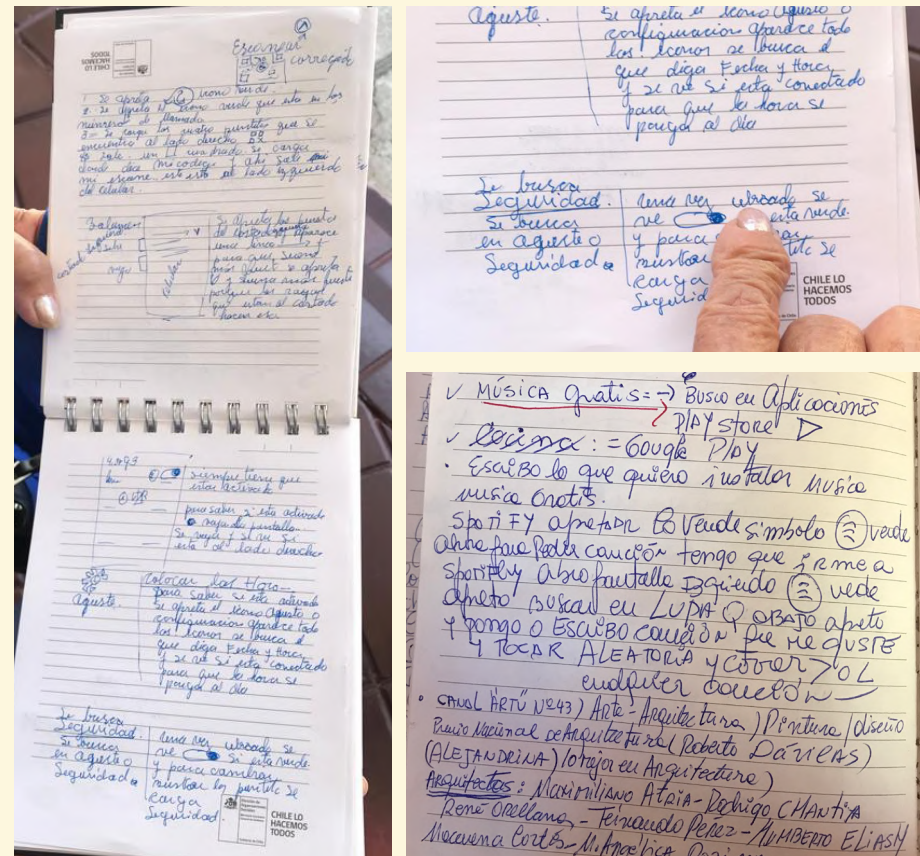 CHILE LO
HACEMOS
TODOS
Escarnear
corregido
1 Se apreta icono verde.
2. Se apreta el icono verde que esta en los
números de llamada
3= Se carga los cuatro puntitos que se
encuentra al lado derecho
sale un cuadrado se carga
donde dice mi codego y ahi sale
mi escarne esto esta al lado ezquierdo
de celular.
sube
baja
celular
Se apreta los puntito
del costado y aparece
una linea
para que suene
mas fuerte se apreta
y suena mas fuerte
porque las rayas
que estan al costado
hacen eso.
4 G
siempre tiene que
estar activado
para saber si esta activado
baja la pantalla
Se baja y se ve si
esta al lado derecho
Aguste.
Colocar las Hora
para saber si esta activado
Se apreta el icono Agusto o
configuracion aparece todo
los iconos se busca el
que diga Fecha y Hora
y se ve si esta conectado
para que la hora se
ponga al dia
Se busca
Seguridad.
Si buscas
en aguste o
Seguridad
una vez ubicado se
ve si esta verde.
y para cambiar
nuestro se
carga
Seguridad
CHILE LO
HACEMOS
TODOS
Aguste.
Se apreta el icono Agusto o
configuracion aparece todo
los iconos se busca el
que diga Fecha y Hora
y se ve si esta conectado
para que la hora se
ponga al dia
Se busca
Seguridad.
Si buscas
en aguste o
Seguridad
una vez ubicado se
ve esta verde.
y para
se
carga
CHILE LO
HACEMOS
TODOS
✓ MÚSICA gratis = → Busco en Aplicaciones
PlAY store ▷
✓ : = Google PlAY
• EscriBo lo que quiero instalar Musica
musica Gratis.
SpotiFY apretar lo verde simbolo verde
ahora para Poder canción tengo que irme a
Spotify abro pantalla Izquierdo verde
Apreto BUSCAR en LUPA Q ABAJO apreto
y pongo o ESCRIBO canción que me GUSTE
y TOCAR ALEATORIA y correr > OL
cualquier canción
• CANAL ARTV Nº43) Arte-Arquitectura) Pintura/diseño
Premio Nacional de Arquitectura (Roberto DáVILAS)
(ALEJANDRINA) Arquitectura)
Arquitectos: Maximiliano - Rodrigo CHANtiA
René Orellana - Fernando Perez - HUMBERTO ELIASH
Macarena Cortés - M. Angelica